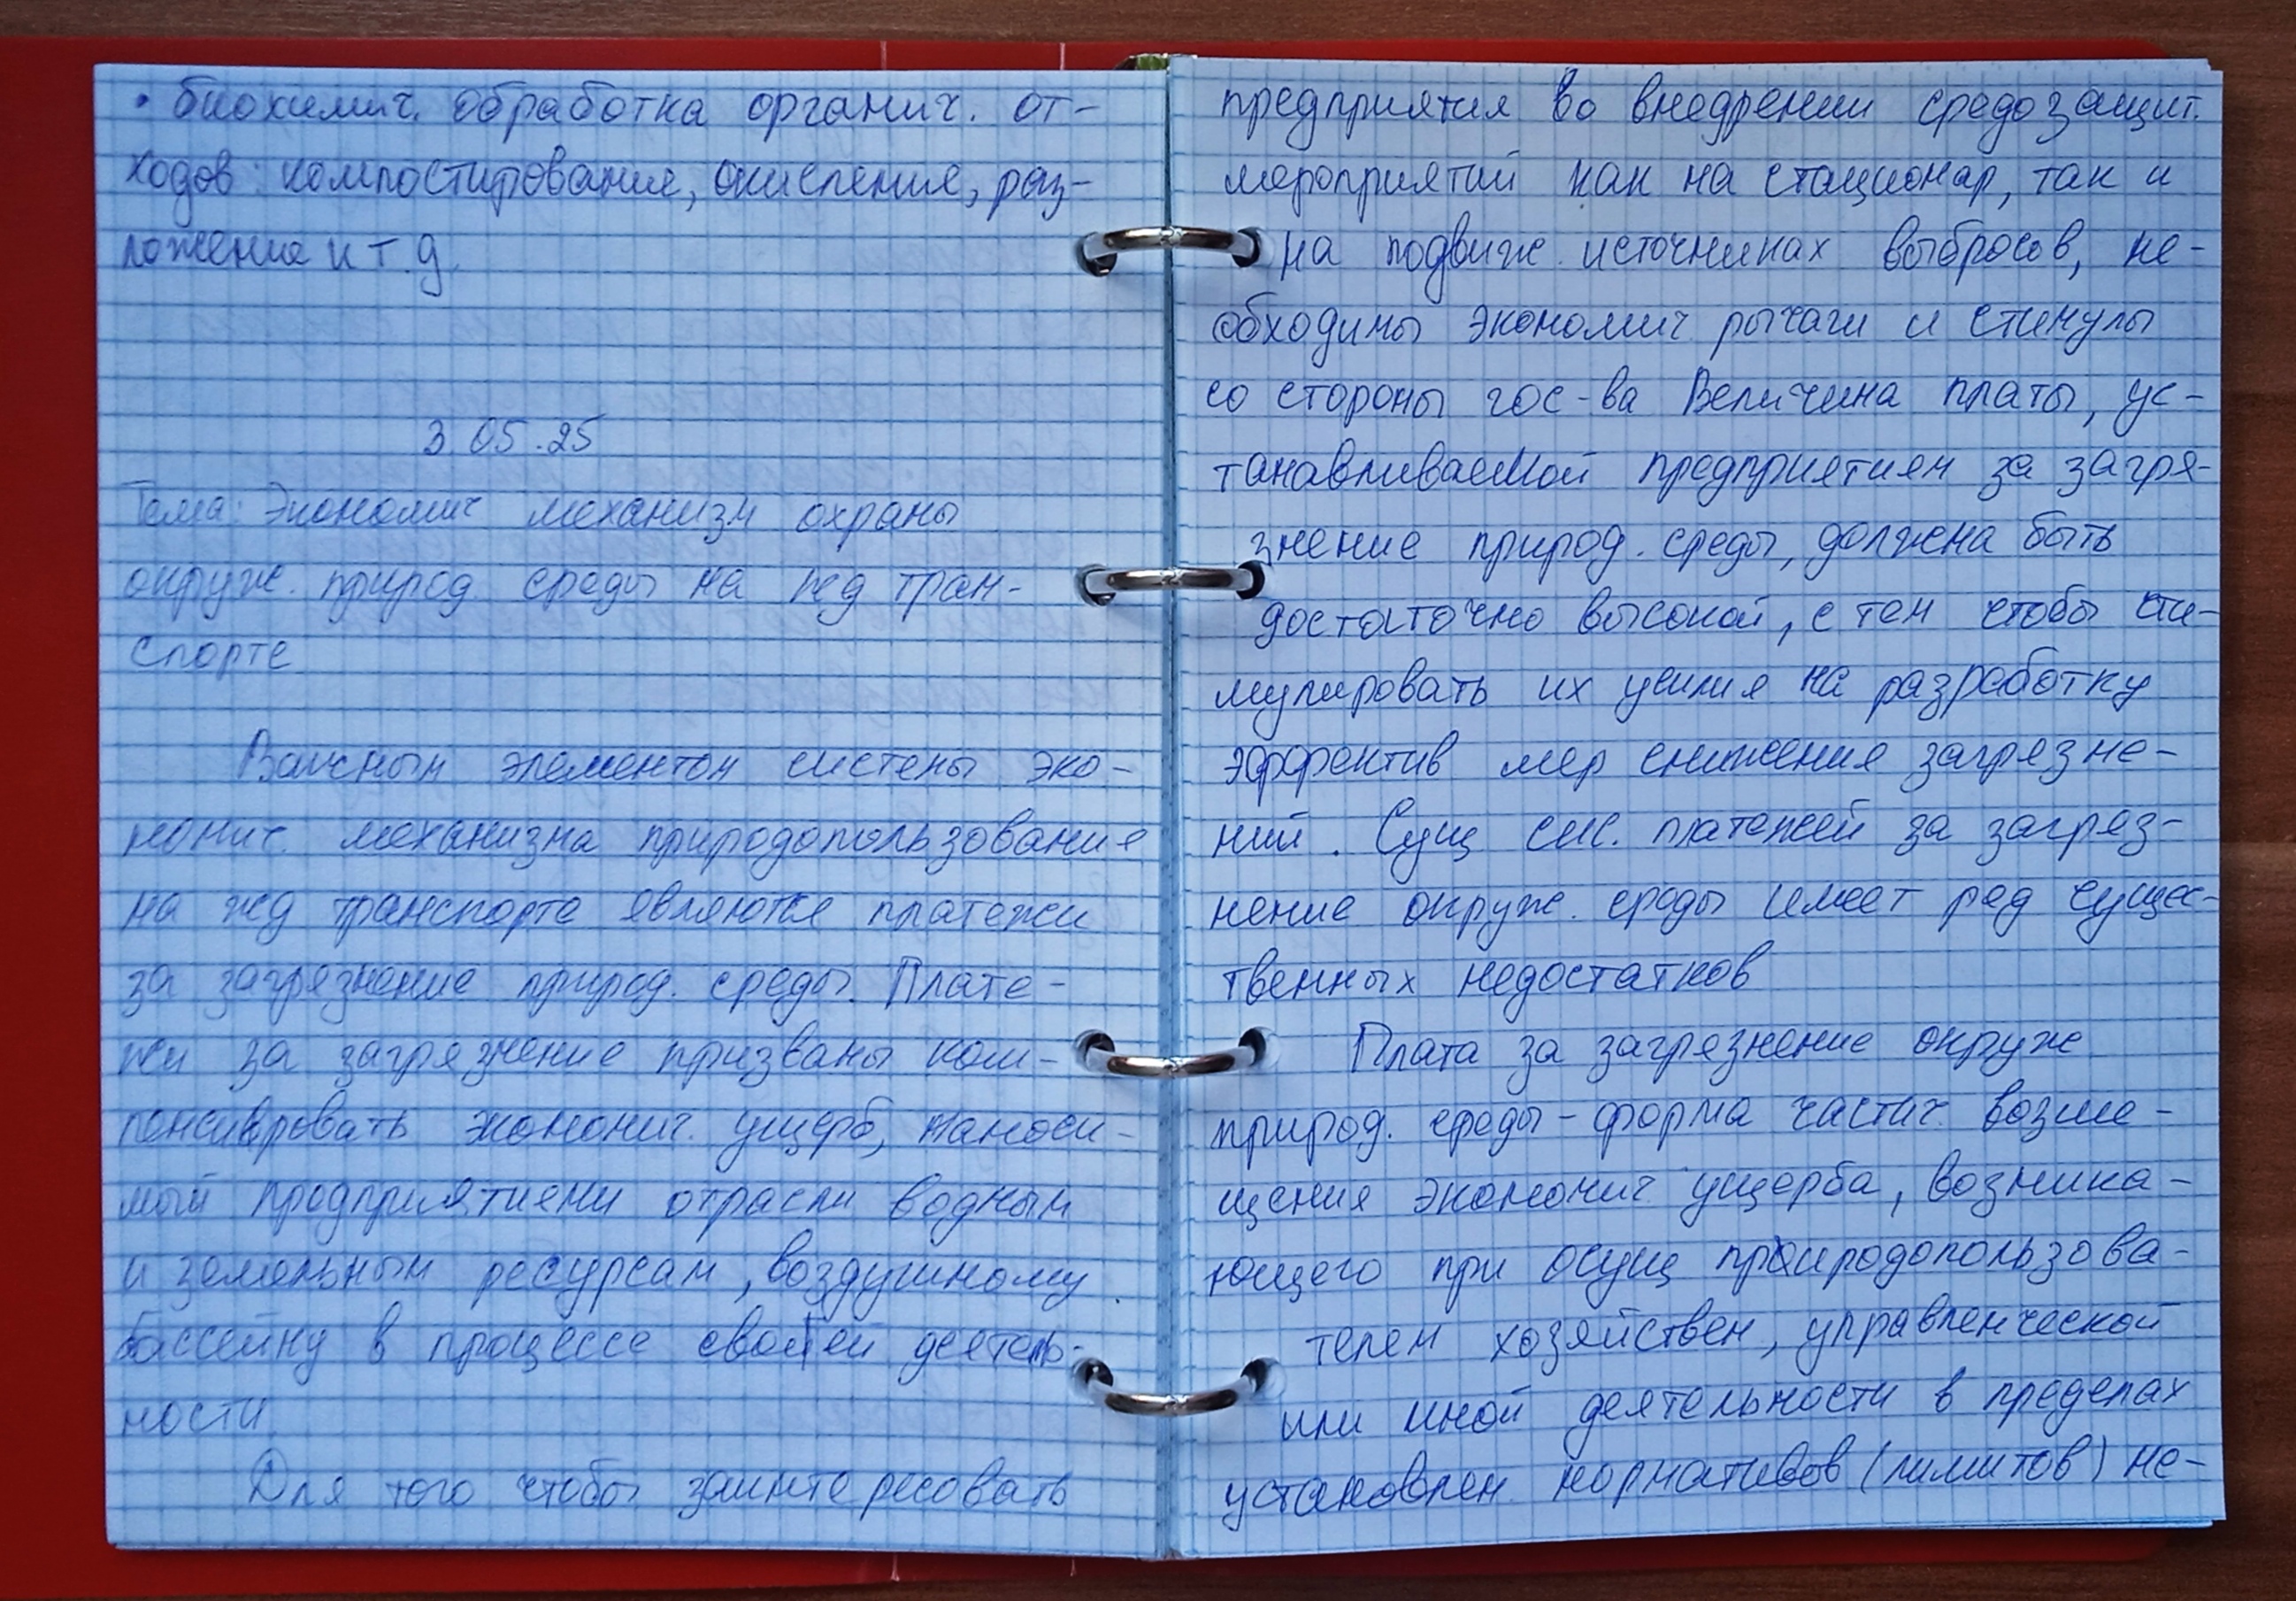 • биохимич. обработка органич. от-
ходов: компостирование, окисление, раз-
ложение и т.д.
3.05.25
Тема: Экономич механизм охраны
окруж. природ. среды на жд тран-
спорте
Важным элементом системы эко-
номич. механизма природопользование
на жд транспорте являются платежи
за загрязнение природ. среды. Плате-
жи за загрязнение призваны ком-
пенсировать экономич. ущерб, наноси-
мый предприятиеми отрасли водным
и земельным ресурсам, воздушному
бассейну в процессе своей деятель-
ности.
Для того чтобы заинтересовать
предприятия во внедрении средозащит.
мероприятий как на стационар, так и
на подвиж. источниках выбросов, не-
обходимы экономич рычаги и стимулы
со стороны гос-ва Величина платы, ус-
танавливаемой предприятиям за загря-
знение природ. среды, должена быть
достаточно высокой, с тем чтобы сти-
мулировать их усилия на разработку
эффектив мер снижения загрязне-
ний. Сущ сис. платежей за загряз-
нение окруж. среды имеет ряд сущес-
твенных недостатков
Плата за загрязнение окруж
природ. среды - форма частич. возме-
щения экономич. ущерба, возника-
ющего при осущ природопользова-
телем хозяйствен, управленческой
или иной деятельности в пределах
установлен. нормативов (лимитов) не-